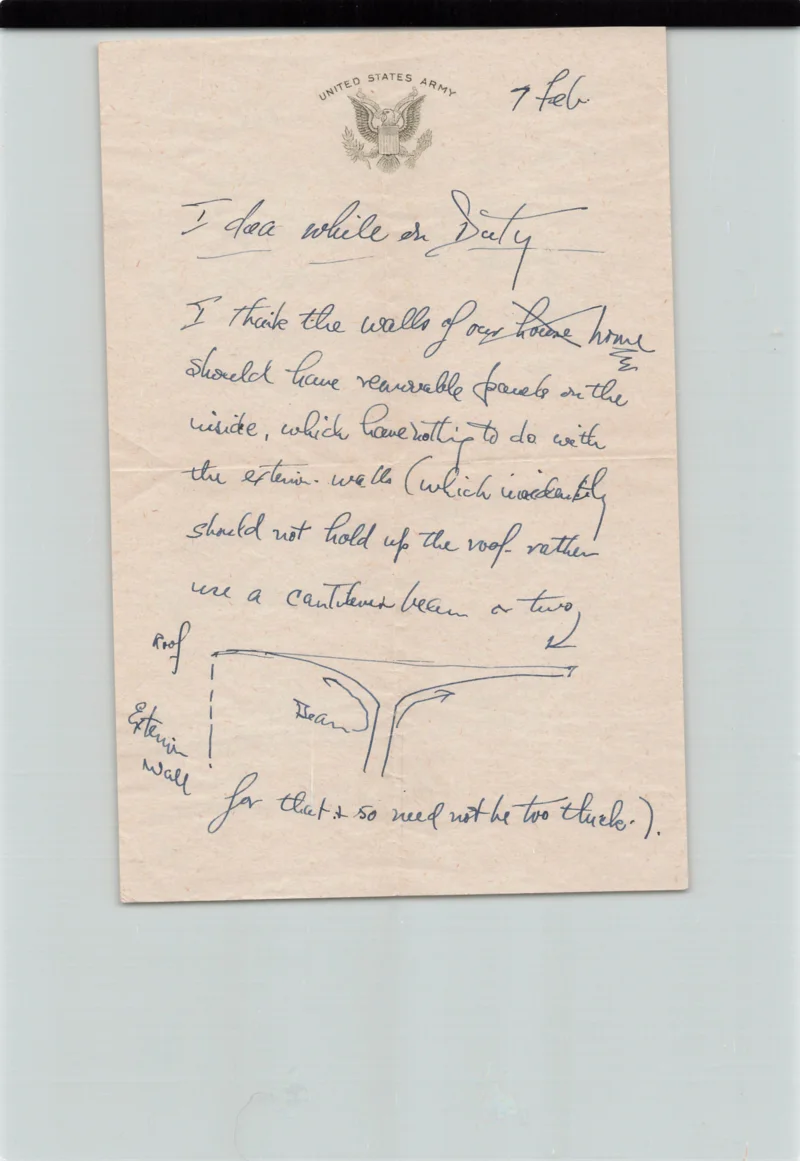 UNITED STATES ARMY
7 Feb
Idea while on Duty
I think the walls of our house home
should have removable panels on the
inside, which have nothing to do with
the exterior walls (which incidentily
should not hold up the roof - rather
use a cantilever beam or two
Roof
Beam
Exterior
Wall
for that & so need not be too thick.).